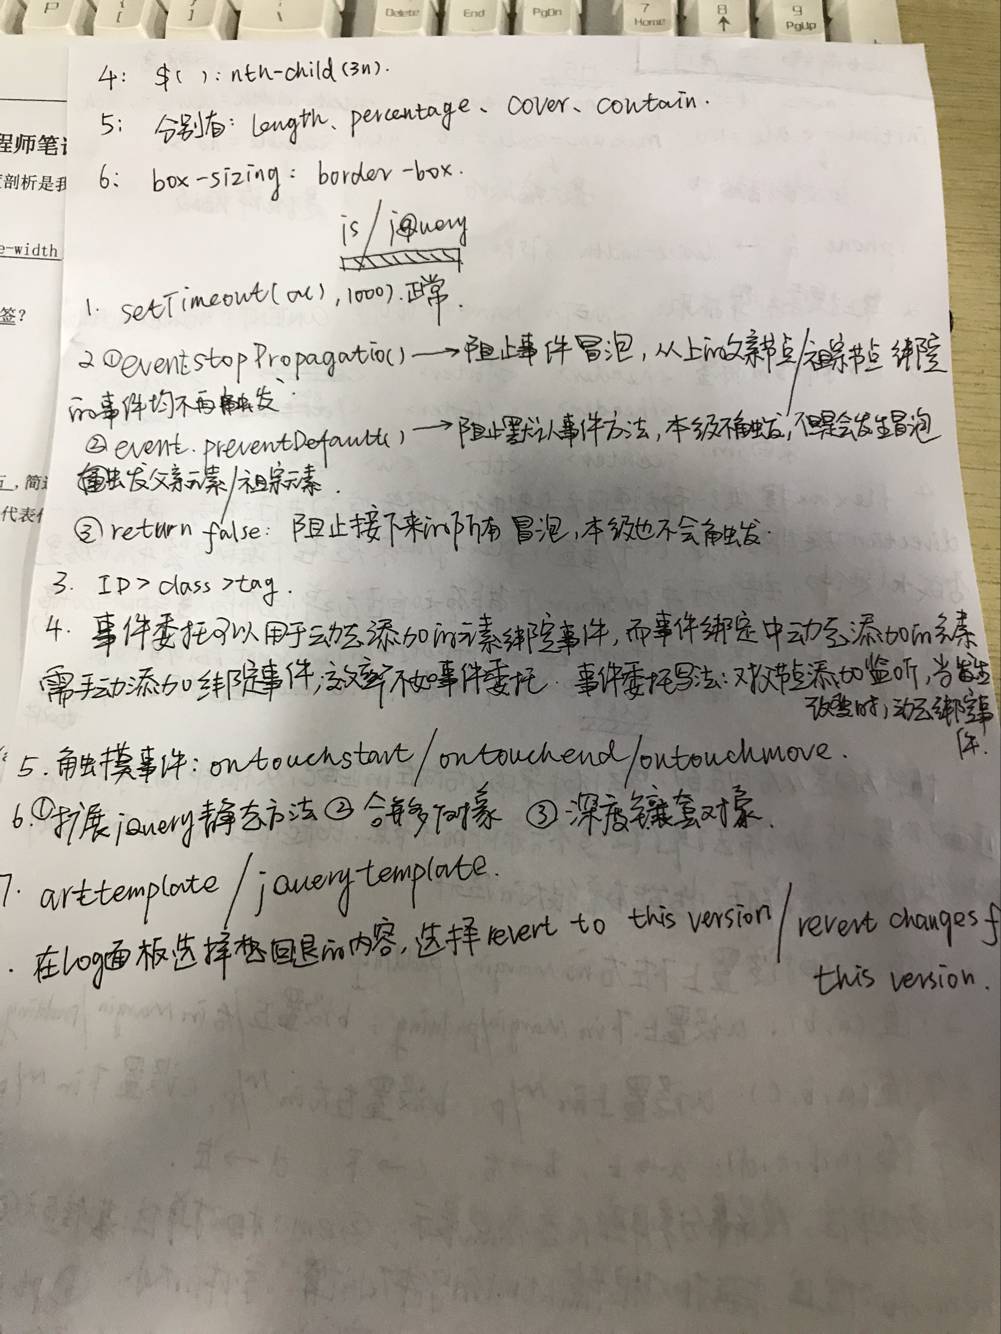 P
[
]
\
Delete
End
PgDn
7
Home
8
9
PgUp
程师笔记
剖析是我
e-width
签?
，简述
代表什
4: $( ): nth-child(3n).
5: 分别有: length、percentage、cover、contain.
6: box-sizing: border-box.
js/jQuery
1. setTimeout(a(),1000).正常.
2 ①eventstopPropagatio()→阻止事件冒泡,从上的父亲节点/祖宗节点绑定
的事件均不再触发
②event.preventDefault()→阻止默认事件方法,本级不触发,但是会发生冒泡
触发父亲元素/祖宗元素.
③return false: 阻止接下来的所有冒泡,本级也不会触发.
3. ID>class>tag.
4. 事件委托可以用于动态添加的元素绑定事件,而事件绑定中动态添加的元素
需手动添加绑定事件,效率不如事件委托. 事件委托写法:对父节点添加监听,当发生
改变时,动态绑定事
件.
5.触摸事件: ontouchstart/ontouchend/ontouchmove.
6.①扩展jQuery静态方法②合并多个对象 ③深度镶套对象.
7. arttemplate/jquerytemplate.
. 在log面板选择想回退的内容,选择revert to this version/revert changes f
this version.